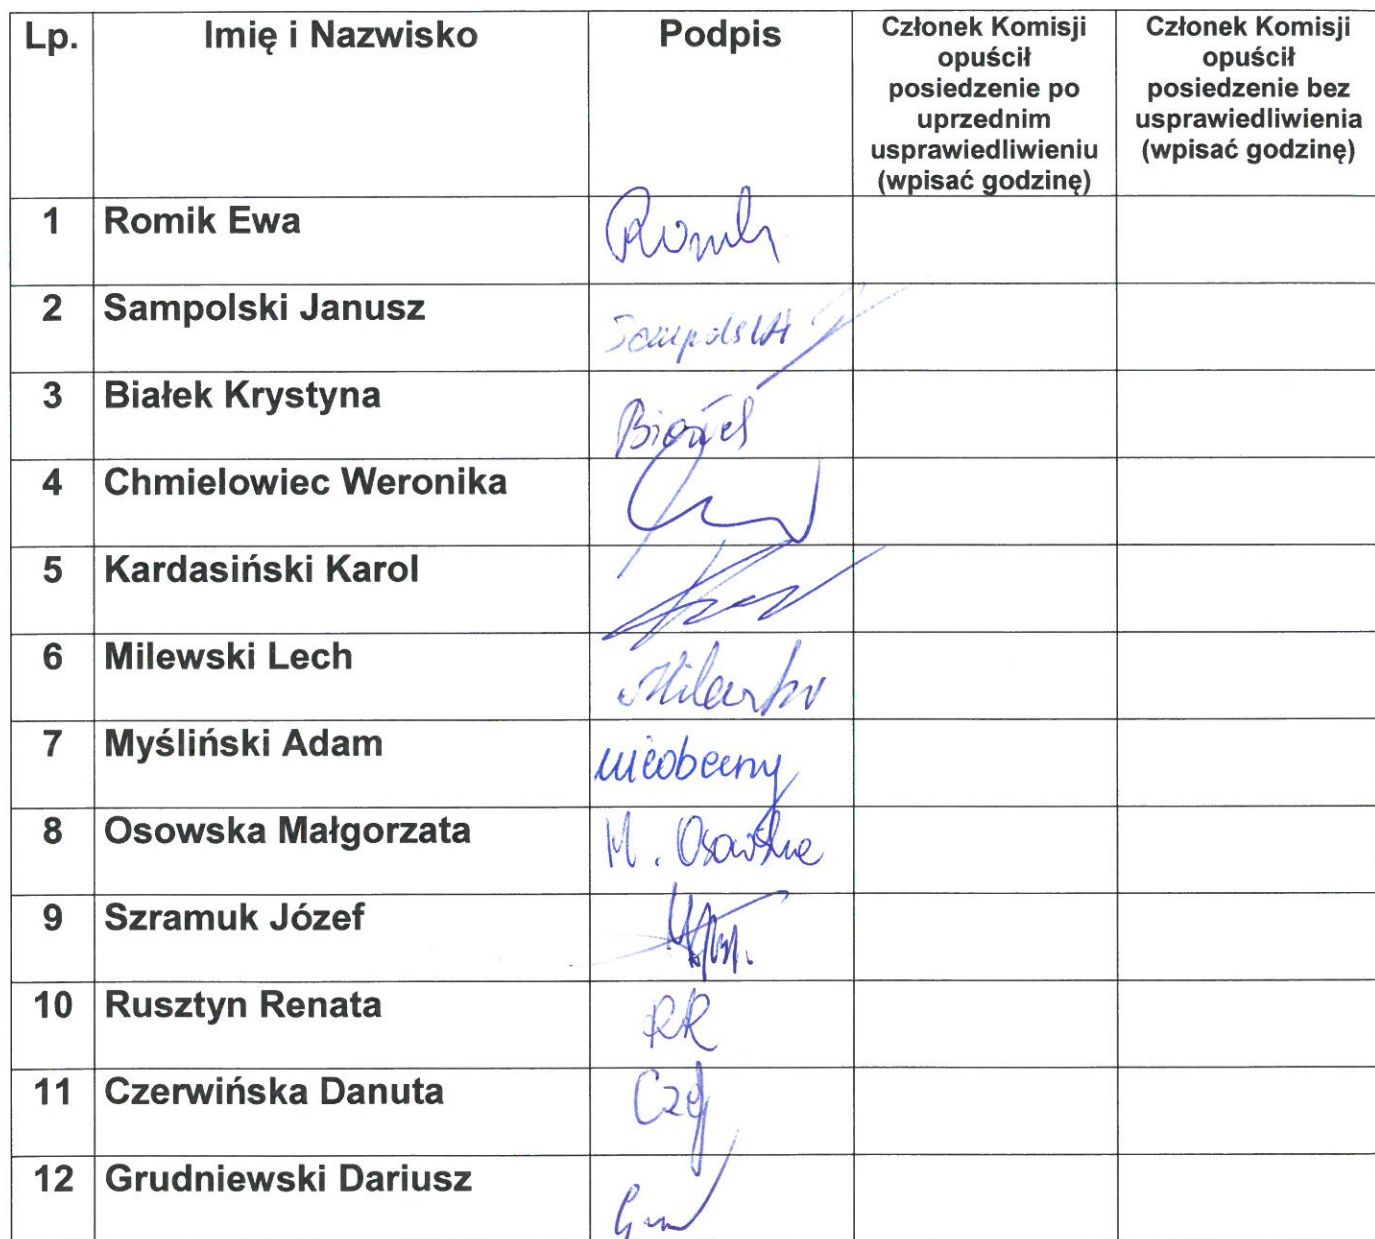 Lp. Imię i Nazwisko Podpis Członek Komisji opuścił posiedzenie po uprzednim usprawiedliwieniu (wpisać godzinę) Członek Komisji opuścił posiedzenie bez usprawiedliwienia (wpisać godzinę)
1 Romik Ewa Romik
2 Sampolski Janusz Sampolski
3 Białek Krystyna Białek
4 Chmielowiec Weronika
5 Kardasiński Karol
6 Milewski Lech Milewski
7 Myśliński Adam nieobecny
8 Osowska Małgorzata M. Osowska
9 Szramuk Józef
10 Rusztyn Renata RR
11 Czerwińska Danuta
12 Grudniewski Dariusz